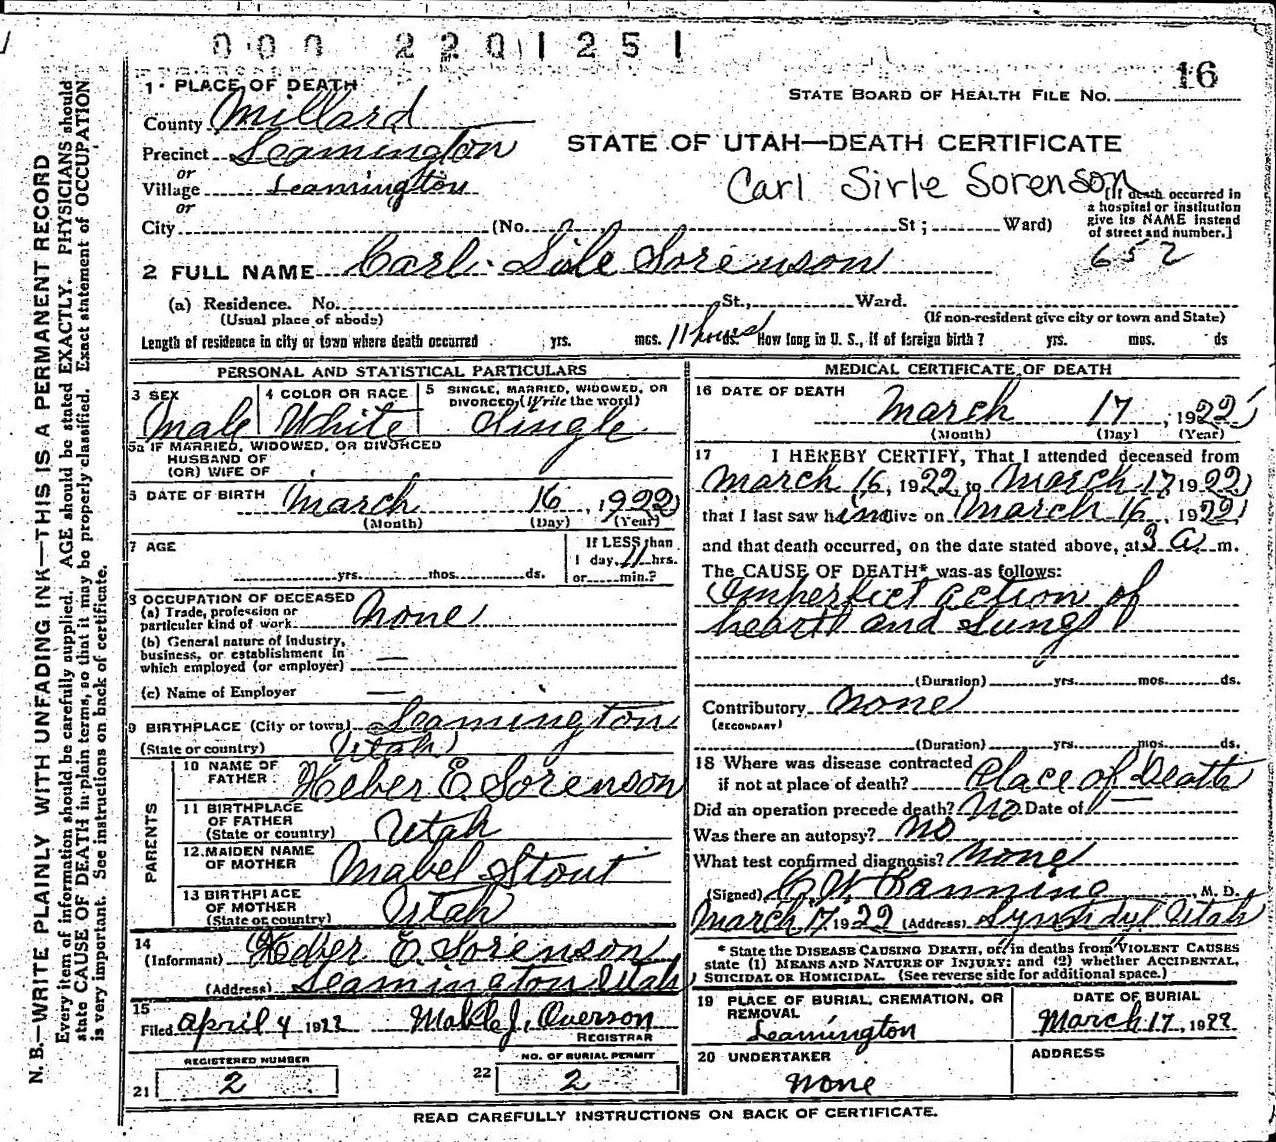 000 2201251
16
1. PLACE OF DEATH
STATE BOARD OF HEALTH FILE NO.
County Millard
Precinct Leamington
STATE OF UTAH—DEATH CERTIFICATE
or
Village Leamington
Carl Sirle Sorenson
or
[If death occurred in
a hospital or institution
give its NAME instead
of street and number.]
City (No. St; Ward)
652
2 FULL NAME Carl Sirle Sorenson
(a) Residence. No. St., Ward.
(Usual place of abode) (If non-resident give city or town and State)
Length of residence in city or town where death occurred yrs. mos. 11 hours ds. How long in U. S., if of foreign birth? yrs. mos. ds
PERSONAL AND STATISTICAL PARTICULARS
3 SEX
Male
4 COLOR OR RACE
White
5 SINGLE, MARRIED, WIDOWED, OR
DIVORCED (Write the word)
Single
5a IF MARRIED, WIDOWED, OR DIVORCED
HUSBAND OF
(OR) WIFE OF
6 DATE OF BIRTH March 16, 1922
(Month) (Day) (Year)
7 AGE
yrs. mos. ds.
If LESS than
1 day, 11 hrs.
or min.?
8 OCCUPATION OF DECEASED
(a) Trade, profession or
particular kind of work None
(b) General nature of industry,
business, or establishment in
which employed (or employer) —
(c) Name of Employer —
9 BIRTHPLACE (City or town) Leamington
(State or country) Utah
PARENTS
10 NAME OF
FATHER Heber E. Sorenson
11 BIRTHPLACE
OF FATHER
(State or country) Utah
12 MAIDEN NAME
OF MOTHER Mabel Stout
13 BIRTHPLACE
OF MOTHER
(State or country) Utah
14
(Informant) Heber E. Sorenson
(Address) Leamington Utah
15
Filed April 4 1922 Mable J. Overson
REGISTRAR
REGISTERED NUMBER
21 2
NO. OF BURIAL PERMIT
22 2
MEDICAL CERTIFICATE OF DEATH
16 DATE OF DEATH
March 17, 1922
(Month) (Day) (Year)
17 I HEREBY CERTIFY, That I attended deceased from
March 16, 1922, to March 17, 1922
that I last saw him alive on March 16, 1922
and that death occurred, on the date stated above, at 3 a. m.
The CAUSE OF DEATH* was as follows:
Imperfect action of
heart and lungs
(Duration) yrs. mos. ds.
Contributory None
(SECONDARY)
(Duration) yrs. mos. ds.
18 Where was disease contracted
if not at place of death? Place of Death
Did an operation precede death? No Date of —
Was there an autopsy? No
What test confirmed diagnosis? None
(Signed) C. W. Banning M. D.
March 17 1922 (Address) Lynndyl Utah
* State the DISEASE CAUSING DEATH, or in deaths from VIOLENT CAUSES
state (1) MEANS AND NATURE OF INJURY; and (2) whether ACCIDENTAL,
SUICIDAL OR HOMICIDAL. (See reverse side for additional space.)
19 PLACE OF BURIAL, CREMATION, OR
REMOVAL
Leamington
DATE OF BURIAL
March 17, 1922
20 UNDERTAKER
None
ADDRESS
READ CAREFULLY INSTRUCTIONS ON BACK OF CERTIFICATE.
N. B.—WRITE PLAINLY WITH UNFADING INK—THIS IS A PERMANENT RECORD
Every item of information should be carefully supplied. AGE should be stated EXACTLY. PHYSICIANS should
state CAUSE OF DEATH in plain terms, so that it may be properly classified. Exact statement of OCCUPATION
is very important. See instructions on back of certificate.